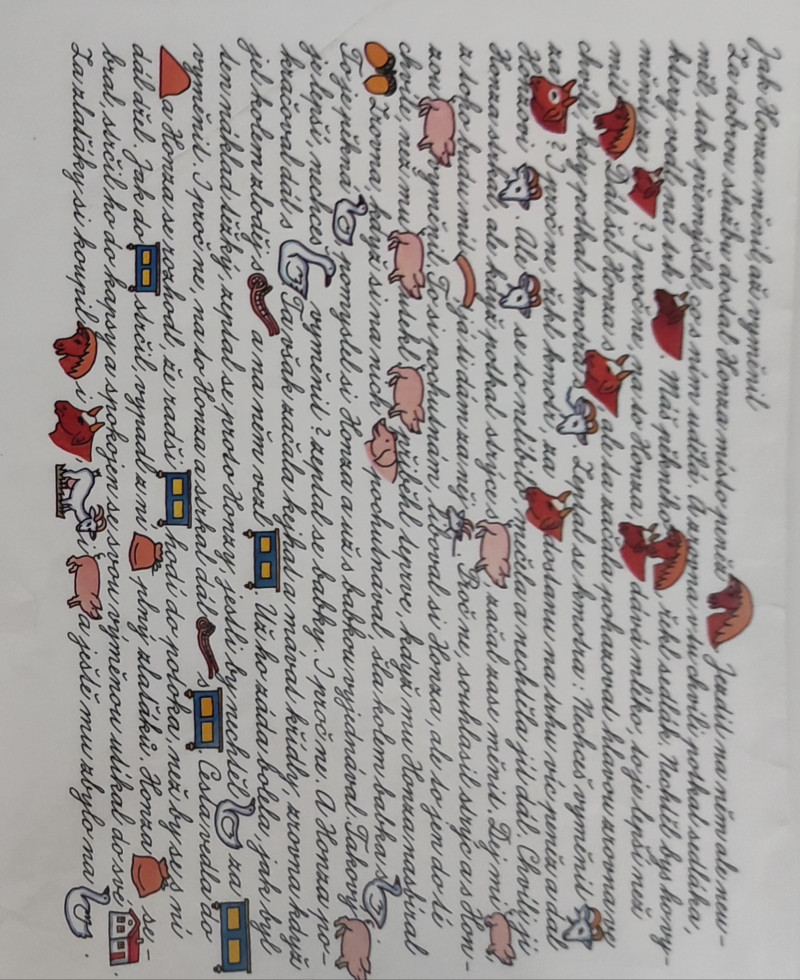 Jak Honza měnil, až vyměnil
Za dobrou službu dostal Honza místo peněz . Jezdit na něm ale neu-
měl, tak přemýšlel, co s ním udělá. Za malou chvíli potkal sedláka,
který vedl na trh . Máš pěkného , řekl sedlák. Nechtěl bys ho vy-
měnit za ? I proč ne, na to Honza, dává mléko, to je lepší než
mít . Dál šel Honza s , ale ta začala pohazovat hlavou zrovna ve
chvíli, kdy potkal kmotra s . Zeptal se kmotra: Nechceš vyměnit
za ? I proč ne, řekl kmotr, za dostanu na trhu víc peněz a dal
Honzovi . Ale se to nelíbilo, mečela a nechtěla jít dál. Chvíli ji
Honza strkal, ale když potkal strýce s , začal zase měnit. Dej mi ,
z toho budu mít , já ti dám za ně . Proč ne, souhlasil strýc a s Hon-
zou vyměnil. To si pochutnám, liboval si Honza, ale to jen do té
chvíle, než mu utekl. přiběhl teprve, když mu Honza nasbíral
. Zrovna, když si na nich pochutnával, šla kolem babka s .
To je pěkná , pomyslel si Honza a už s babkou vyjednával. Takový
je lepší, nechceš vyměnit? zeptal se babky. I proč ne. A Honza po-
kračoval dál s . Ta však začala kejhat a mávat křídly, zrovna když
jel kolem zloděj s a na něm vezl . Už ho záda bolela, jak byl
ten náklad těžký, zeptal se proto Honzy, jestli by nechtěl za
vyměnit. I proč ne, na to Honza a strkal dál s . Cesta vedla do
a Honza se rozhodl, že radši hodí do potoka, než by se s ní
dál dřel. Jak do strčil, vypadl z ní plný zlaťáků. Honza se-
bral, strčil ho do kapsy a spokojen se svou výměnou utíkal do své .
Za zlaťáky si koupil i , i a ještě mu zbylo na .